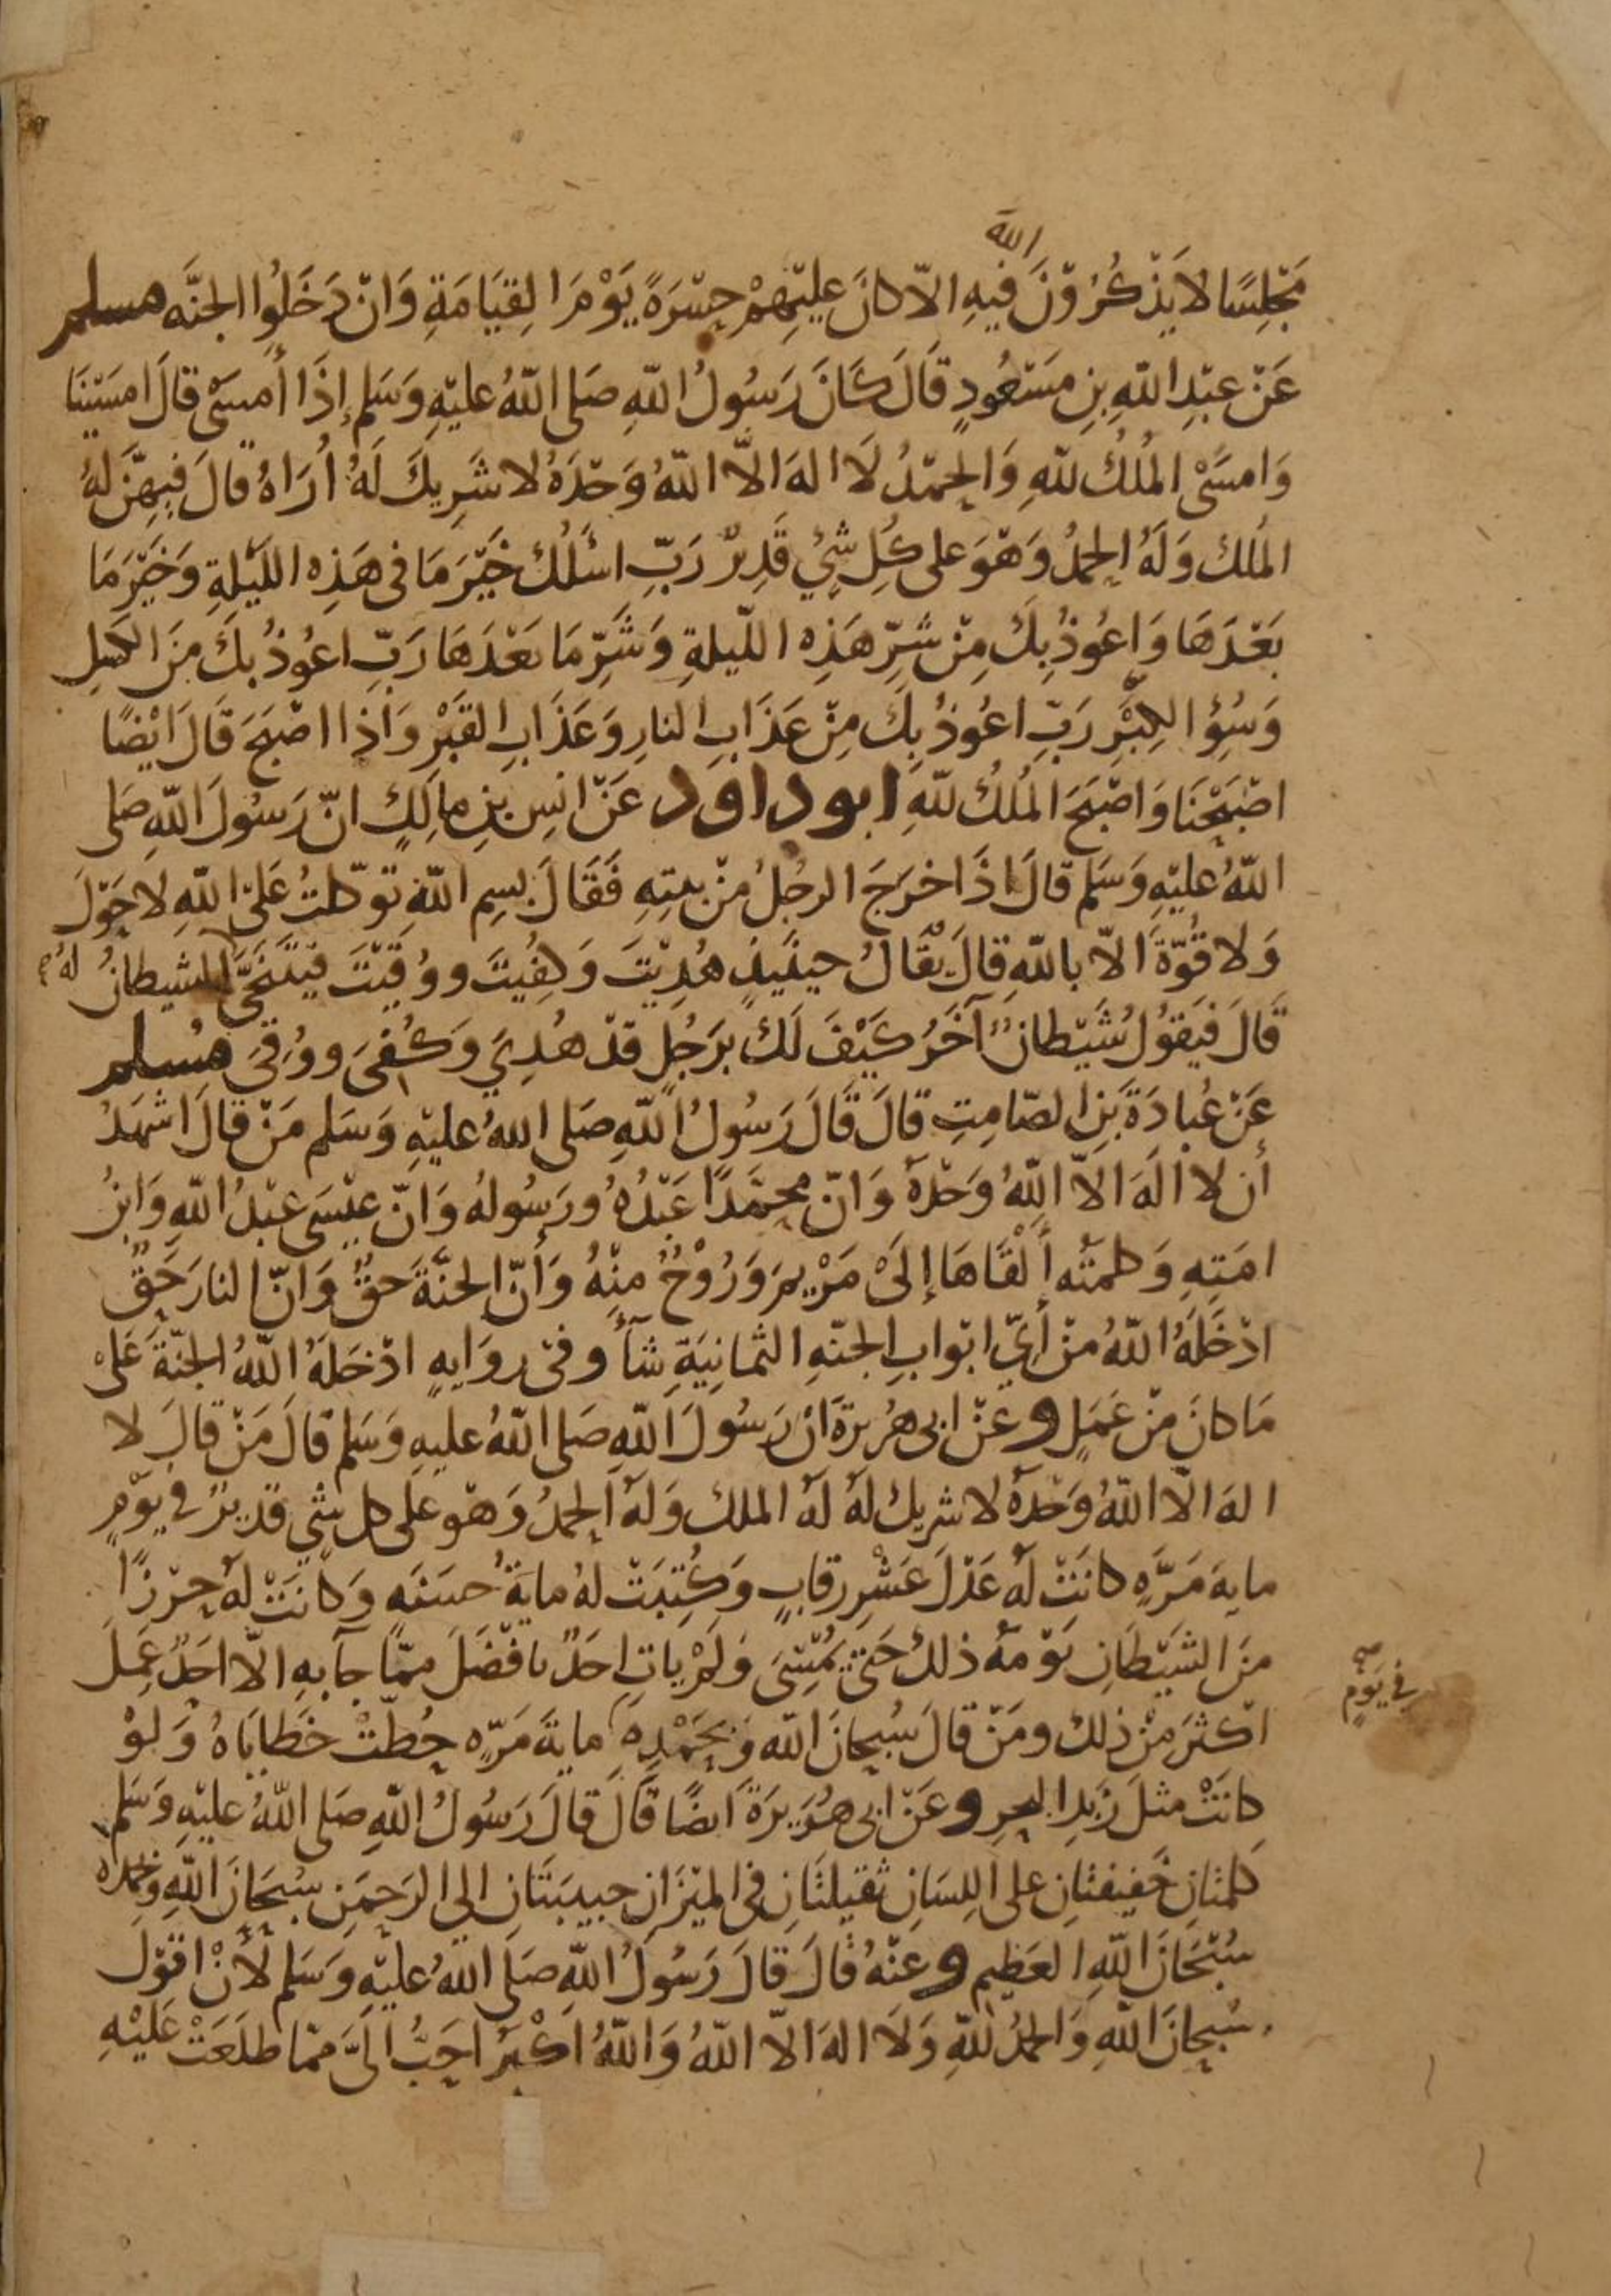 الله
مَجْلِسًا لا يَذْكُرُوْنَ فيهِ الّا كانَ عليْهِمْ حسْرَةً يَوْمَ القِيَامَةِ وَانْ دَخَلُوا الجنَّه مسلم
عَنْ عبْدِ اللّهِ بنِ مسْعُودٍ قَالَ كَانَ رَسُولُ اللّهِ صَلى اللّهُ عليْهِ وَسَلم إذَا أَمسَىْ قالَ امسَيْنَا
وَامسَىْ المُلكُ للّهِ وَالحمْدُ لَا اله الّا اللّهُ وَحْدَهُ لا شَرِيكَ لَهُ أُرَاهُ قالَ فِيهِنَّ لهُ
المُلكَ وَلَهُ الحمدُ وَهْوَ على كُلِ شَيْءٍ قَدِيرٌ رَبِّ اسْئَلُكَ خيْرَ مَا فى هَذِهِ الليْلةِ وَخَيْرَ مَا
بَعْدَهَا وَاعُوذُ بِكَ مِنْ شرِّ هَذِهِ الليلةِ وَشَرِّ مَا بَعْدَهَا رَبِّ اعُوذُ بكَ مِنَ الكسلِ
وَسُؤِ الكِبَرِ رَبِّ اعُوذُ بِكَ مِنْ عَذَابِ النارِ وَعَذَابِ القَبْرِ وَاذِا اصْبَحَ قَالَ ايْضًا
اصْبَحْنَا وَاصْبَحَ المُلكُ للّهِ ابو داود عَنْ انسِ بنِ مالِكٍ انّ رَسُولَ اللّهِ صَلى
اللّهُ عليْهِ وَسَلم قالَ اذَا خرَجَ الرجُلُ منْ بيتهِ فَقَالَ بسمِ اللّهِ توكّلتُ عَلىْ اللّهِ لا حَوْلَ
وَلا قُوّةَ الّا باللّهِ قالَ يُقَالُ حينَئِيذٍ هُدِيْتَ وَكفِيْتَ ووُقِيْتَ فيَتَنَحَّى الشيطانُ لهُ
قَالَ فيَقُولُ شَيْطانٌ آخَرُ كَيْفَ لَكَ برَجُلٍ قدْ هُدِيَ وَكُفِىَ ووُقىَ مُسلم
عَنْ عُبادَةَ بنِ الصّامِتِ قالَ قَالَ رَسُولُ اللّهِ صَلى اللهُ عليْهِ وَسَلم مَنْ قالَ اشْهَدُ
أَن لا الَهَ الّا اللّهُ وَحْدهُ وَانّ محمَّدًا عَبْدُهُ ورَسُولهُ وَانّ عيْسَى عبْدُ اللّهِ وَابنُ
امَتِهِ وَكلمتُه أَلْقَاهَا إلَىْ مَرْيمَ وَرُوْحٌ منْهُ وَأَنّ الجنَّةَ حقٌ وَانّ النارَ حَقٌ
ادْخَلَهُ اللّهُ منْ أَيّ ابْوابِ الجنّهِ الثمانِيَةِ شآءَ وفىْ روَايهٍ ادْخَلَهُ اللّهُ الجنّةَ عَلىْ
مَا كانَ منْ عَمَلٍ وعنْ ابى هُريرَةَ انْ رَسُولَ اللّهِ صَلى اللّهُ عليهِ وَسَلم قالَ مَنْ قالَ لا
اله الّا اللّهُ وَحْدهُ لا شريك لهُ لهُ الملك وَلهُ الحمدُ وَهْو عَلى كل شَيٍ قديرٌ فى يوْمٍ
مايهَ مَرّهٍ كانَتْ لهُ عَدْلَ عَشْرِ رقابٍ وَكُتِبَتْ لهُ مايةُ حسَنهٍ وَكانَتْ لهُ حِرْزًا
منَ الشيْطَانِ يَوْمهُ ذلكَ حَتىْ يُمْسِىَ وَلمْ ياتِ احَدٌ بافْضَلَ ممّا جآ بهِ الّا احَدٌ عَمِلَ
فى يَوْمٍ صح
اكثَرَ منْ ذلك ومَنْ قالَ سُبحانَ اللّه وَبحَمْدِهِ مايةَ مَرّهٍ حُطّتْ خَطايَاهُ وَلوْ
كانَتْ مثلَ زَبدِ البحرِ وعَنْ ابى هُرَيرَةَ ايضًا قَالَ قالَ رَسُولُ اللّهِ صَلى اللّهُ عليْهِ وَسَلم
كلمتانِ خَفيفتانِ على اللِسَانِ ثقيلتَانِ فى الميْزَانِ حبيبَتَانِ الى الرَحمَنِ سُبحَانَ اللّهِ وَبحمدهِ
سُبْحَانَ اللّهِ العَظِيمِ وعنْهُ قالَ قَالَ رَسُولُ اللّهِ صَلَى اللّهُ عليْهِ وَسَلم لَأَنْ اقوْلَ
سُبحانَ اللّهِ وَالحمدُ للّهِ وَلَا الهَ الّا اللّهُ وَاللّهُ اكْبرُ احَبُّ الَىَّ ممّا طلَعَتْ عَلَيْهِ